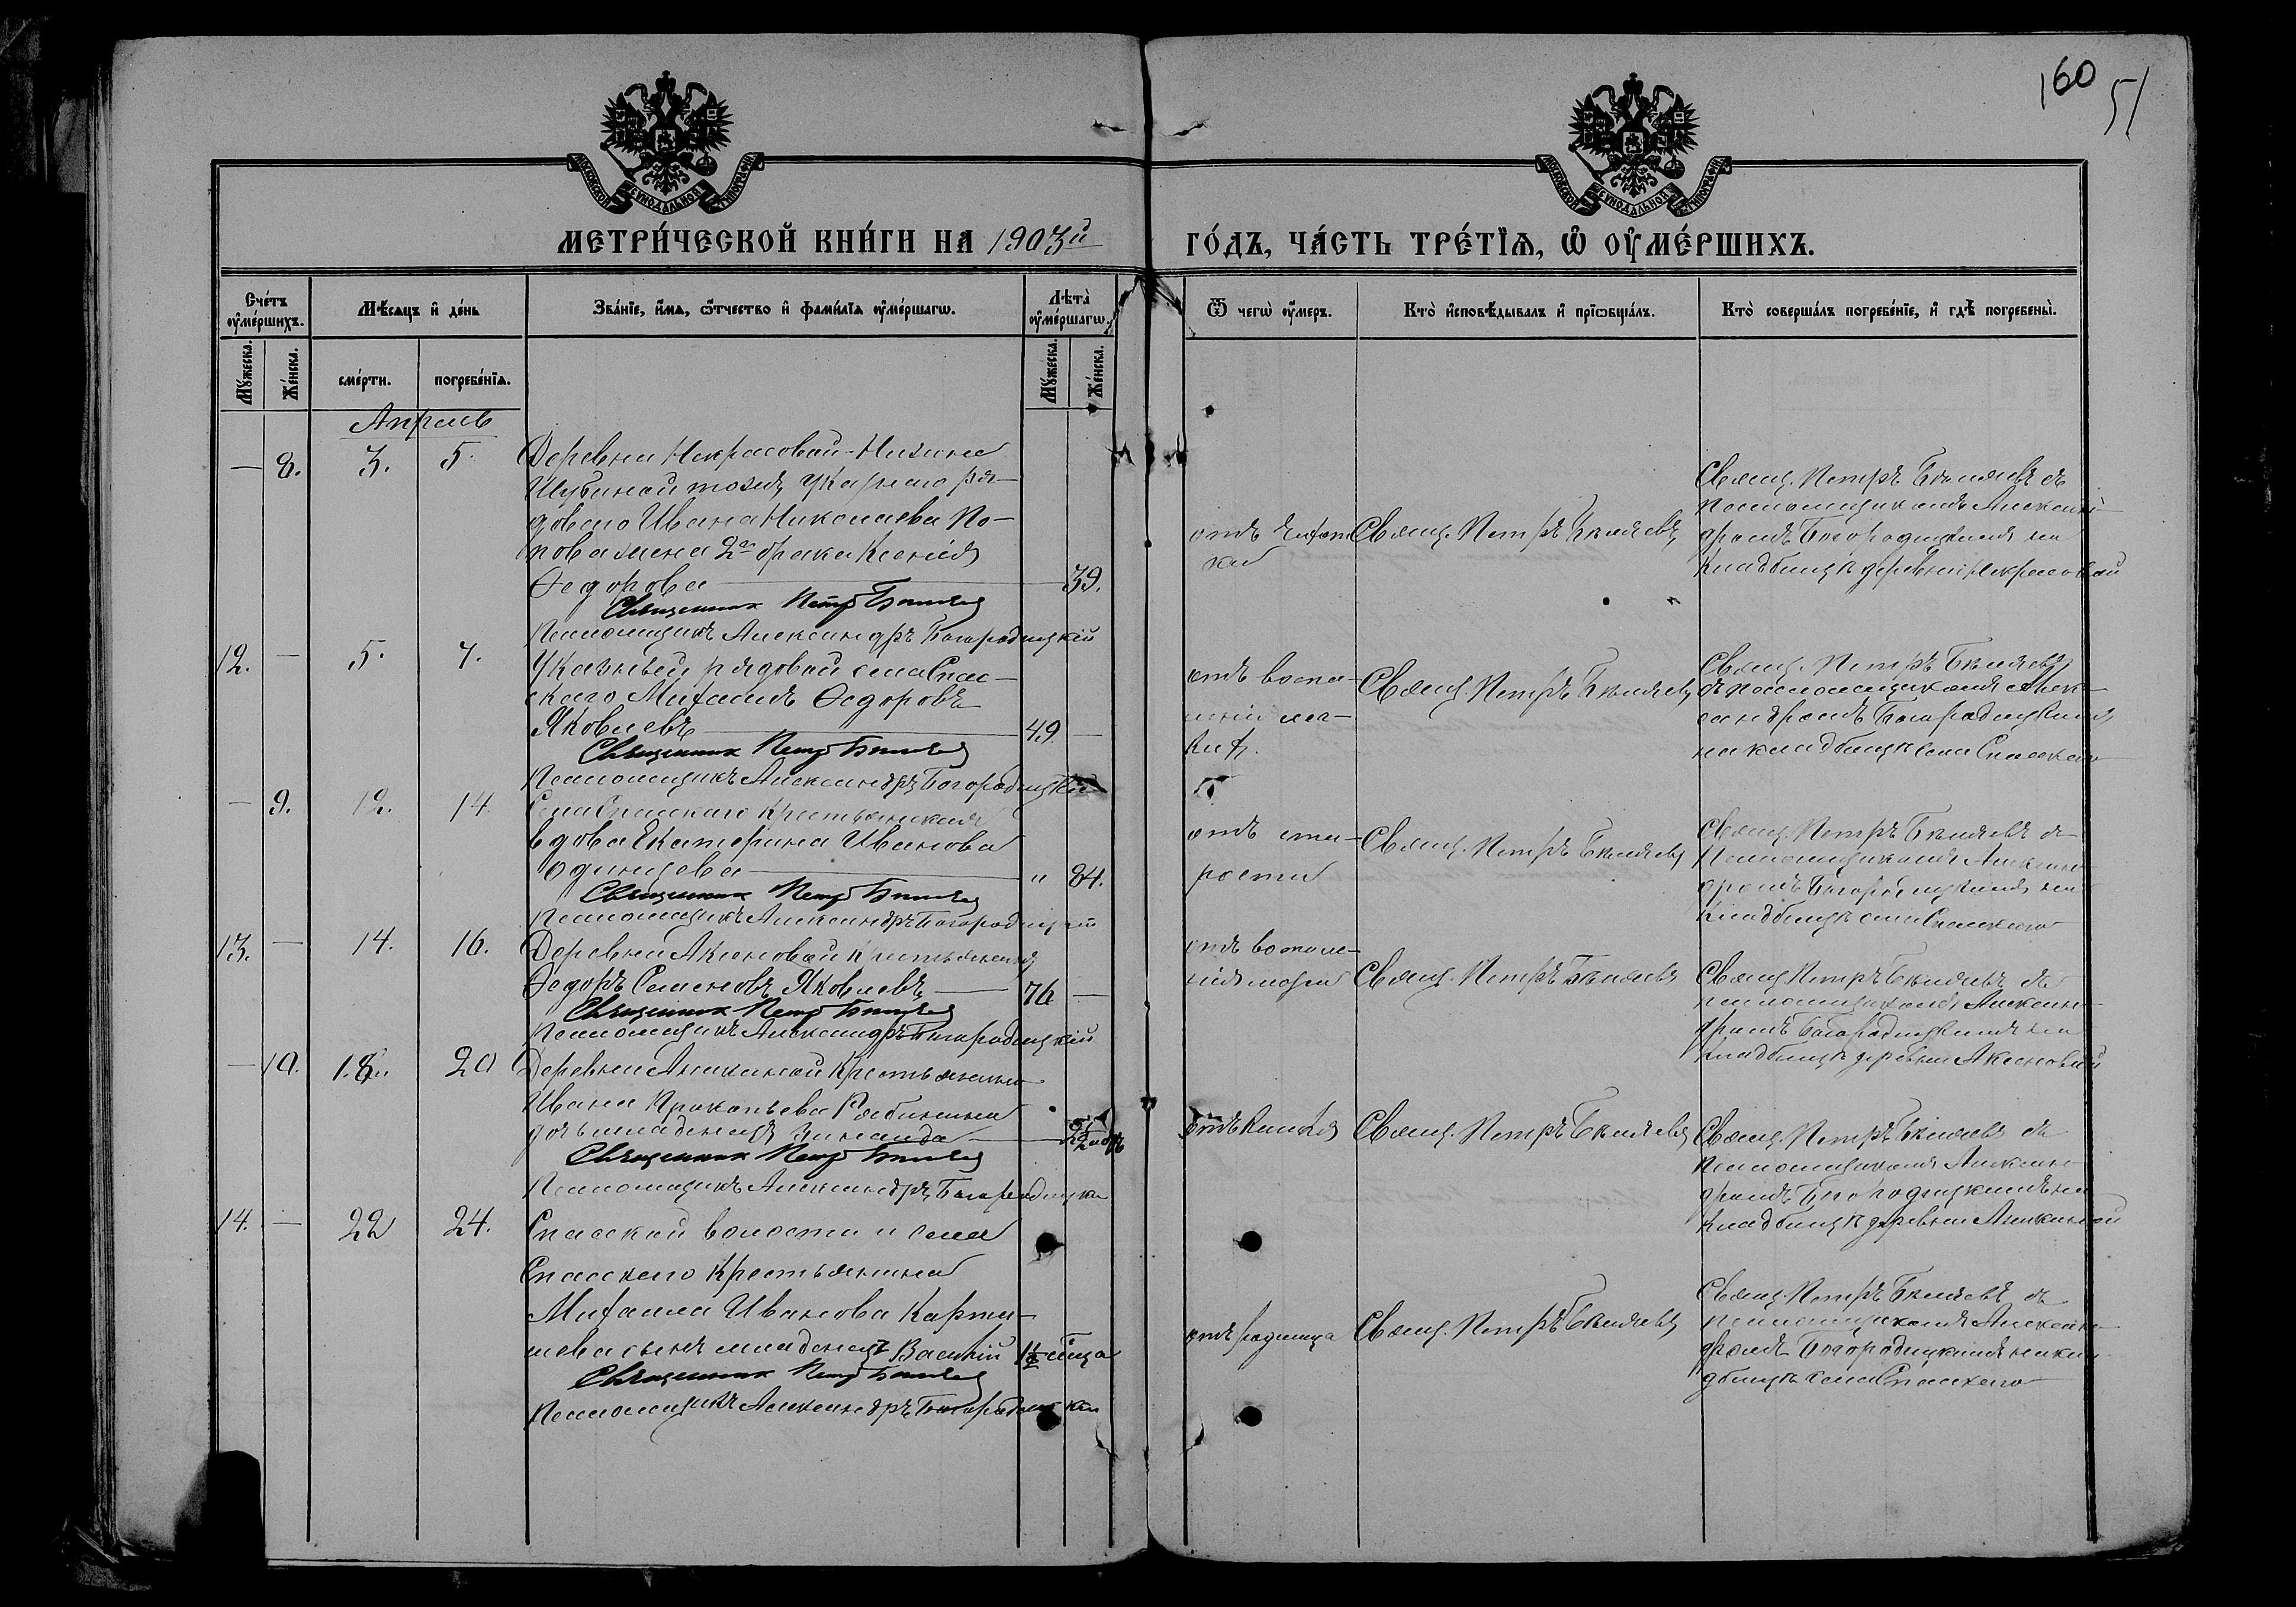 160 51
МОСКОВСКОЙ СѴНОДАЛЬНОЙ ТИПОГРАФІИ
МОСКОВСКОЙ СѴНОДАЛЬНОЙ ТИПОГРАФІИ
МЕТРИ́ЧЕСКОЙ КНИ́ГИ НА 1903й
ГО́ДЪ, ЧА́СТЬ ТРЕ́ТІѦ, Ѡ҆ ОУ҆МЕ́РШИХЪ.
Сче́тъ оу҆ме́ршихъ.
Мѣ́сяцъ и҆ де́нь
Зва́нїе, и҆́мѧ, ѻ҆́тчество и҆ фами́лїѧ оу҆ме́ршагѡ.
Лѣ́та оу҆ме́ршагѡ.
Ѿ чегѡ̀ оу҆́меръ.
Кто̀ и҆сповѣ́дывалъ и҆ прїѻбща́лъ.
Кто̀ соверша́лъ погребе́нїе, и҆ гдѣ̀ погребены̀.
Мꙋ́жеска. Же́нска.
сме́рти. погребе́нїѧ.
Мꙋ́жеска. Же́нска.
Апрель
— 8. 3. 5.
Деревни Некрасовой-
Шубиной тожъ, Указнаго ря-
доваго Ивана Николаева По-
пова жена 2го брака Ксенія
Ѳедорова — 39.
Священник Петр Беляев
Псаломщикъ Александръ Богородицкій
отъ чахот
ки
Свящ. Петръ Бѣляевъ
Свящ. Петръ Бѣляевъ съ
псаломщикомъ Алексан-
дромъ Богородицкимъ на
кладбищѣ деревни Некрасовой
12. — 5. 7.
Указный рядовой села Спас-
скаго Михаилъ Ѳедоровъ
Яковлевъ — 49 —
Священник Петр Беляев
Псаломщикъ Александръ Богородицкій
отъ воспа-
ленія лег-
ких.
Свящ. Петръ Бѣляевъ
Свящ. Петръ Бѣляевъ
съ псаломщикомъ Алек-
сандромъ Богородицкимъ
на кладбищѣ села Спасскаго
— 9. 12. 14.
Села Спасскаго крестьянская
вдова Екатерина Иванова
Одинцова — " 84.
Священник Петр Беляев
Псаломщикъ Александръ Богородицкій
отъ ста-
рости
Свящ. Петръ Бѣляевъ
Свящ. Петръ Бѣляевъ съ
псаломщикомъ Алексан-
дромъ Богородицкимъ на
кладбищѣ села Спасскаго
13. — 14. 16.
Деревни Аксеновой крестьянинъ
Ѳедоръ Семеновъ Яковлевъ — 76 —
Священник Петр Беляев
Псаломщикъ Александръ Богородицкій
отъ воспале-
нія мозга
Свящ. Петръ Бѣляевъ
Свящ. Петръ Бѣляевъ съ
псаломщикомъ Алексан-
дромъ Богородицкимъ на
кладбищѣ деревни Аксеновой
— 10. 18. 20
Деревни Аникиной крестьянина
Ивана Прокопьева Рябинина
дочь младенецъ Зинаида —
Священник Петр Беляев
Псаломщикъ Александръ Богородицкій
отъ кашля
Свящ. Петръ Бѣляевъ
Свящ. Петръ Бѣляевъ съ
псаломщикомъ Алексан-
дромъ Богородицкимъ на
кладбищѣ деревни Аникиной
14. — 22 24.
Спасской волости и села
Спасскаго крестьянина
Михаила Иванова
сынъ младенецъ Василій 1½ мѣсяца
Священник Петр Беляев
Псаломщикъ Александръ Богородицкій
отъ родимца
Свящ. Петръ Бѣляевъ
Свящ. Петръ Бѣляевъ съ
псаломщикомъ Алексан-
дромъ Богородицкимъ на кла-
дбищѣ села Спасскаго